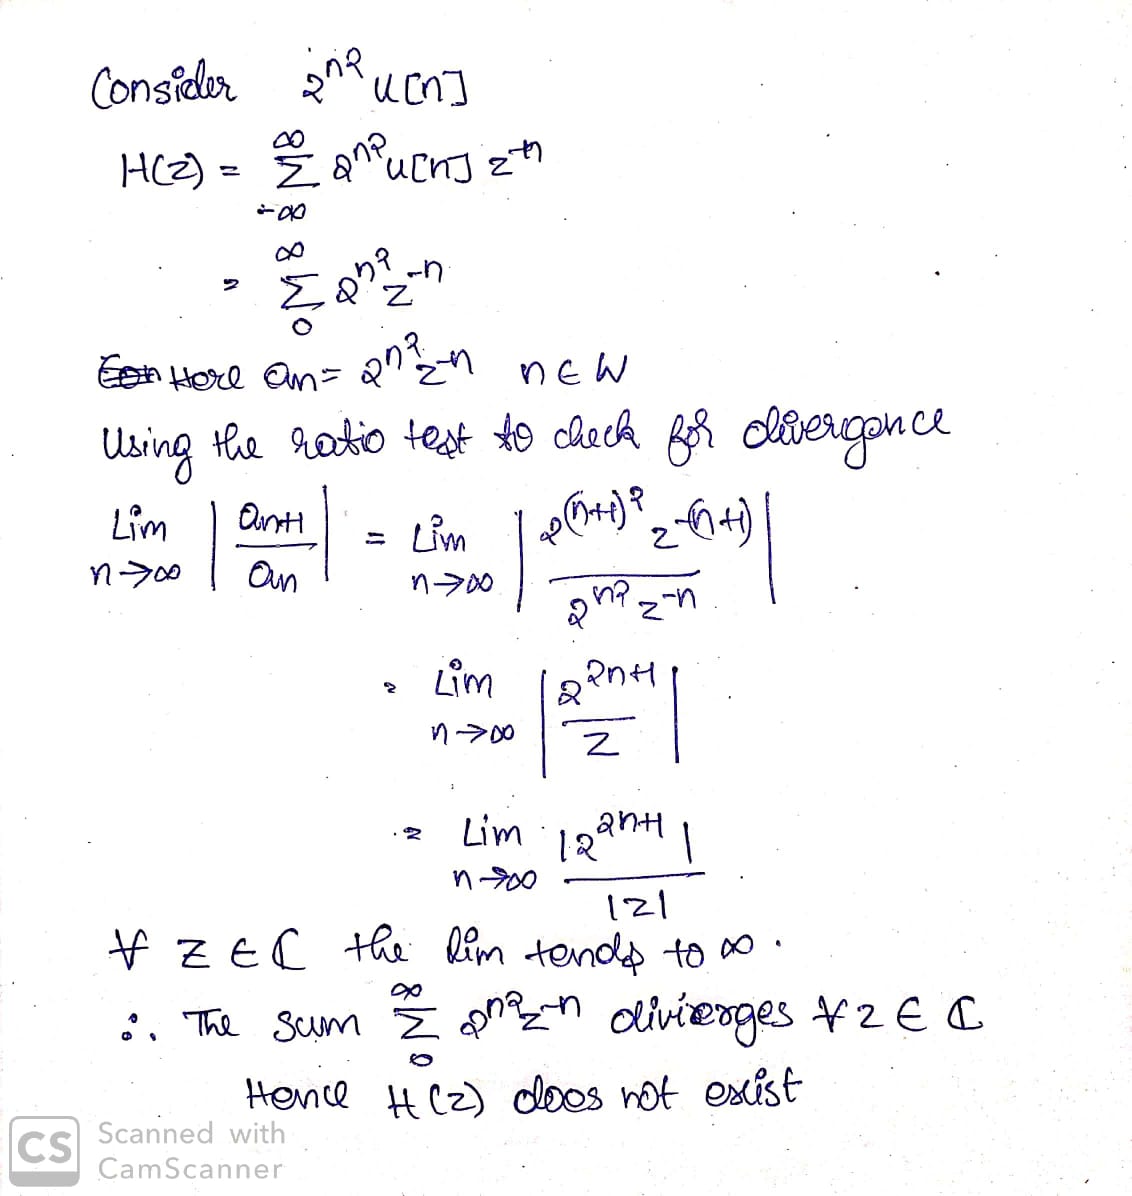 Consider 2^{n^2} u[n]
H(z) = \sum_{-\infty}^{\infty} 2^{n^2} u[n] z^{-n}
= \sum_{0}^{\infty} 2^{n^2} z^{-n}
Here an = 2^{n^2} z^{-n} n ∈ W
Using the ratio test to check for divergence
Lim_{n→∞} |an+1 / an| = Lim_{n→∞} |2^{(n+1)^2} z^{-(n+1)} / 2^{n^2} z^{-n}|
= Lim_{n→∞} |2^{2n+1} / z|
= Lim_{n→∞} |2^{2n+1}| / |z|
∀ z ∈ ℂ the lim tends to ∞.
∴ The sum \sum_{0}^{∞} 2^{n^2} z^{-n} divierges ∀ z ∈ ℂ
Hence H(z) does not exist
CS Scanned with
CamScanner